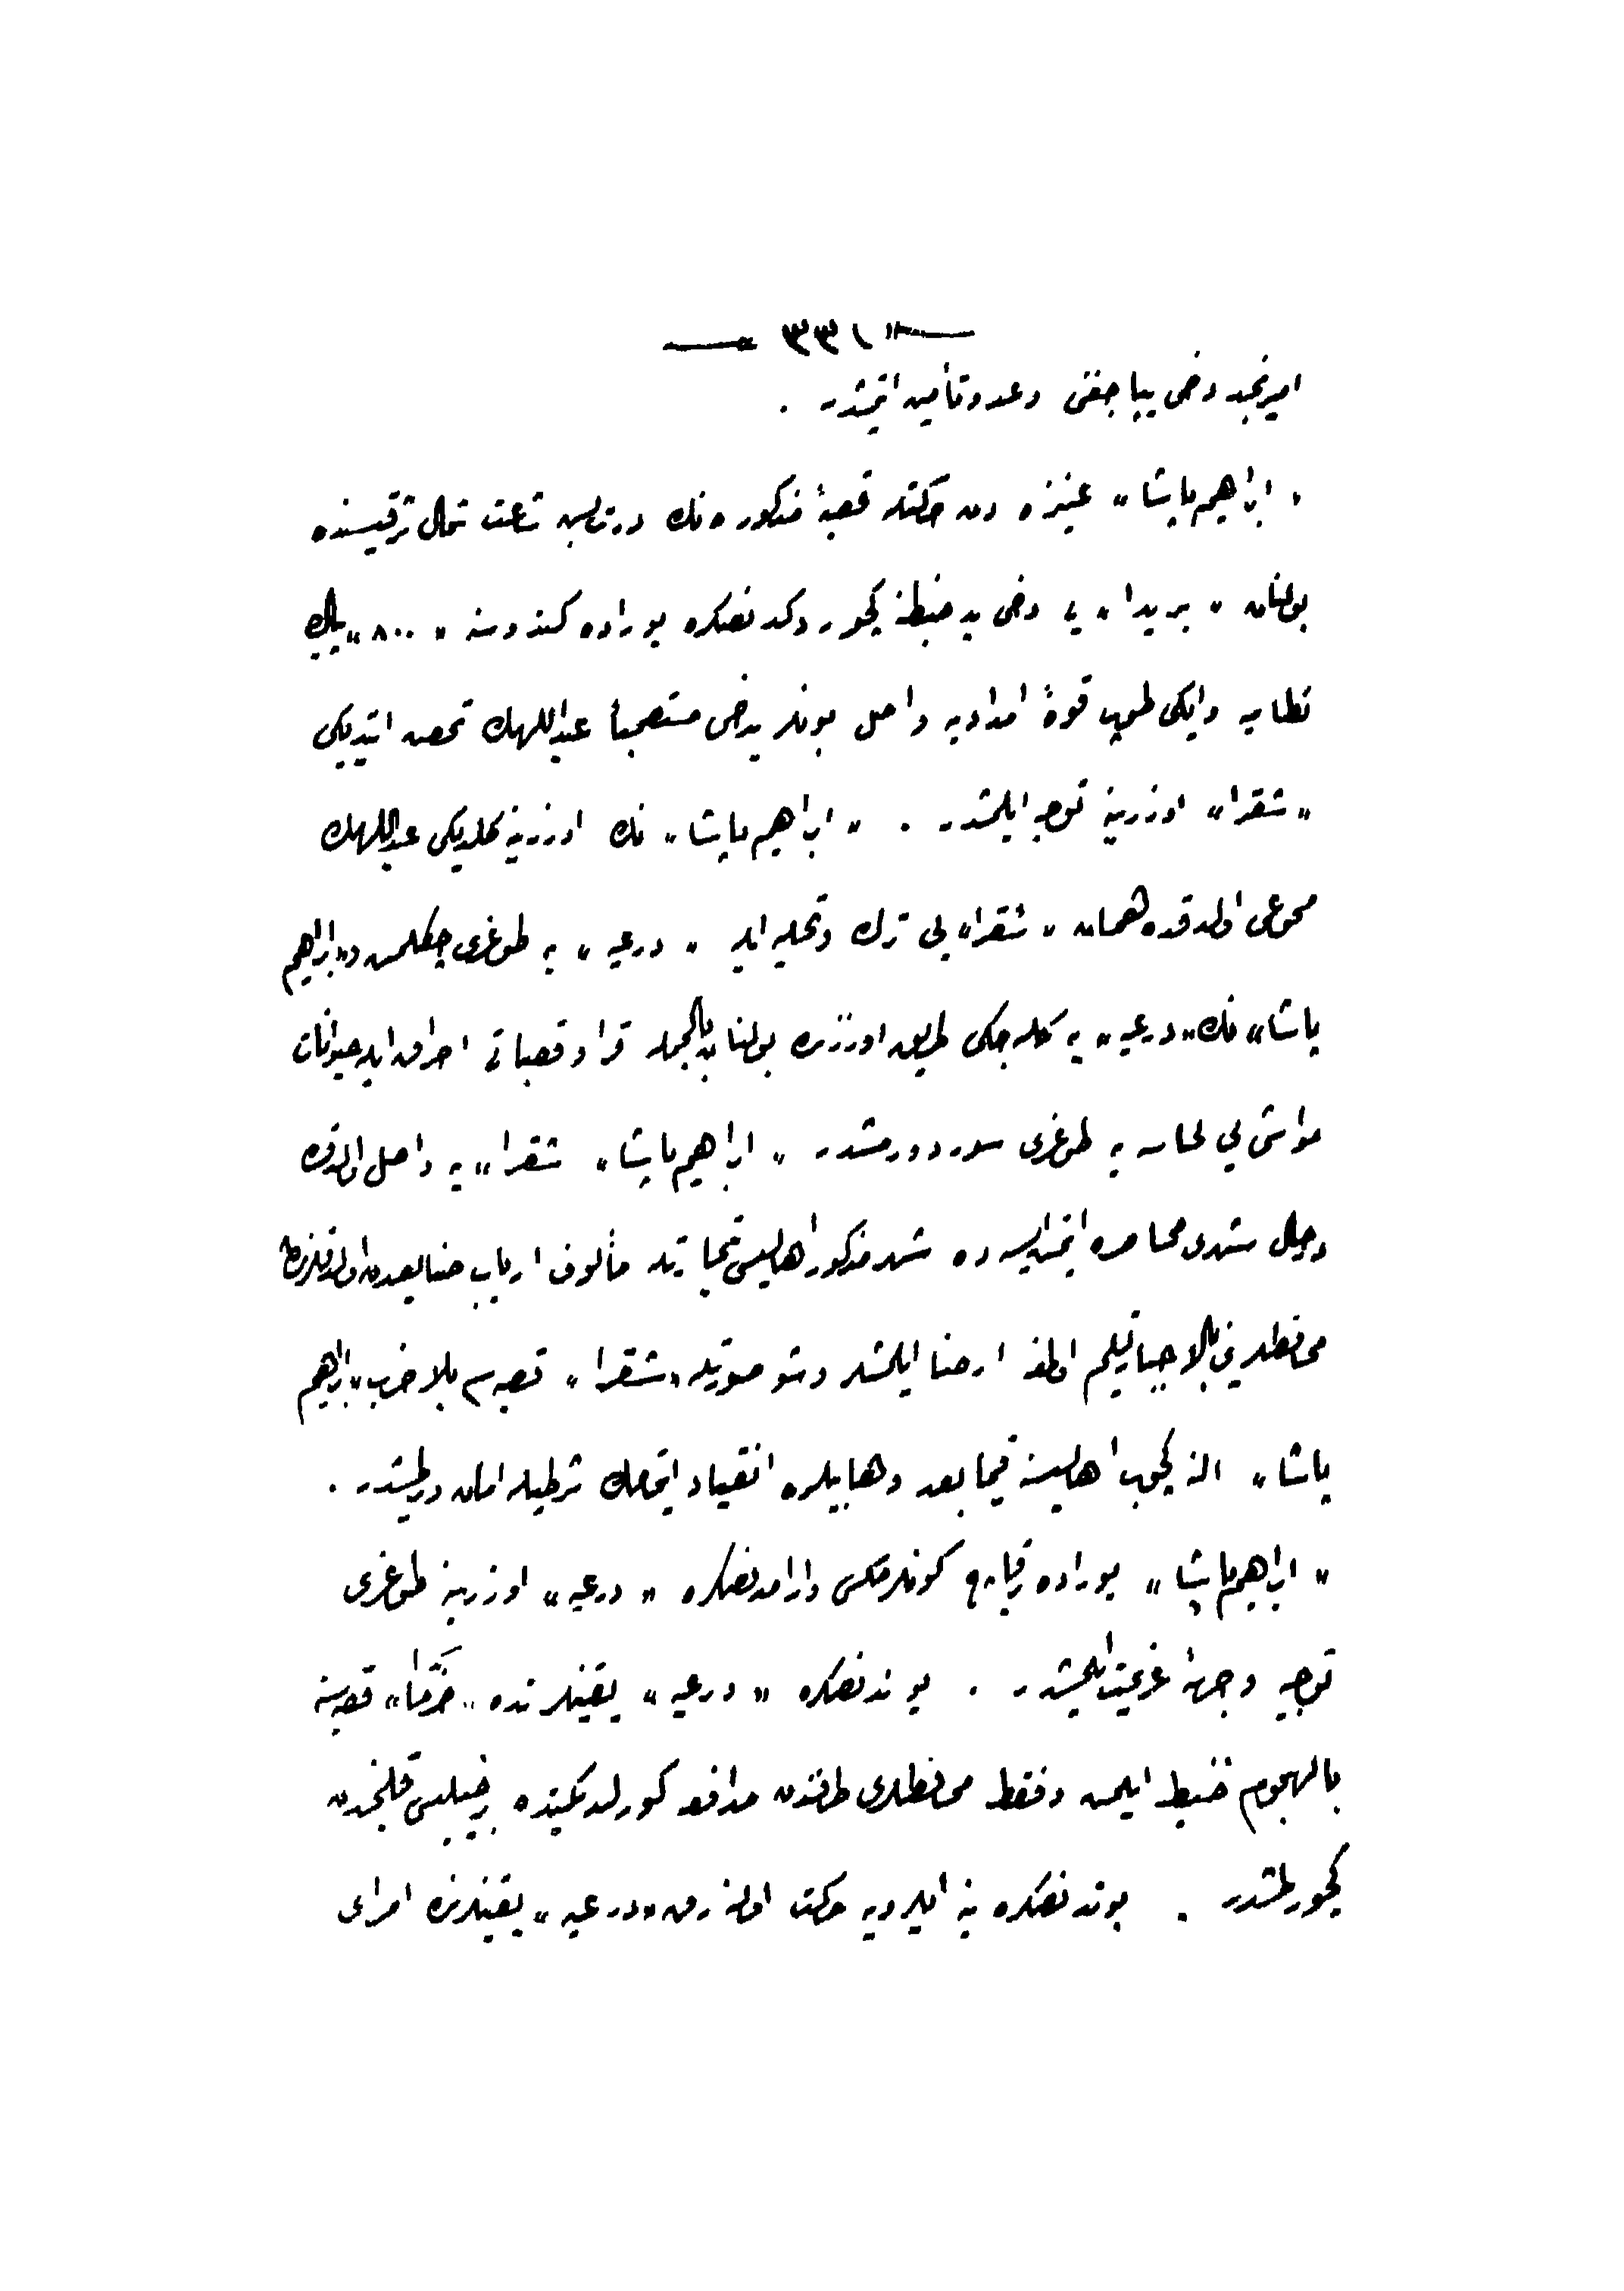 — ٣٣١ —
امير نجد دخی یپاجغنی وعد و تأمین اتمشدر .
« ابراهیم پاشا » عنیزه دن حرکتله قصبهٔ مذکوره نك درت بش ساعت شمال شرقیسنده
بولنان « بریدا » یی دخی ید ضبطنه کچوردکدنصکره بوراده کندوسنه « ٨٠٠ » پیاده
نظامیه و ایکی طوپ قوهٔ امدادیه واصل بونلریدخی مستصحباً عبداللهك تحصن ایتدیکی
« شقرا » اوزرینه توجه ایلمشدر . « ابراهیم پاشا » نك اوزرینه کلدیکی عبداللهك
مسموعی اولدقده همان « شقرا » یی ترك و تخلیه ایله « درعیه » یه طوغری چکلمش و « ابراهیم
پاشا » نك « درعیه » یه کله جکی طریق اوزرنده بولنان بالجمله قرا و قصباتی احراق ایله حیوانات
مواشی یی لحسایه طوغری سوردورمشدر « ابراهیم پاشا » شقرا » یه واصل اولدقده
درحال شهری محاصره ایتمش ایسه ده شهر مذکور اهالیسی تجارتله مألوف ارباب صنایعدن اولدقلرندن
محافظلرینی بالاجبار تسلیم اولمغه ارضا ایلمشلر و شو صورتله « شقرا » قصبه سی بلا ضرب « ابراهیم
پاشا » النه کچوب اهالیسنه فیما بعد وهابیلره انقیاد ایتمامك شرطیله امان ویرلمشدر .
« ابراهیم پاشا » بوراده بر قاچ کونلر مکث و آرامدنصکره « درعیه » اوزرینه طوغری
توجیه وجههٔ عزیمت ایلمشدر . بوندنصکره « درعیه » یقینلرنده « ضرما » قصبه سنه
بالهجوم ضبط ایلمش و فقط محافظلری طرفندن مدافعه کورلدیکندن خیلیسی قلنجدن
کچورلمشدر . بوندنصکره ینه ایلرویه حرکت اولنه رق « درعیه » یقینلرنده امرای